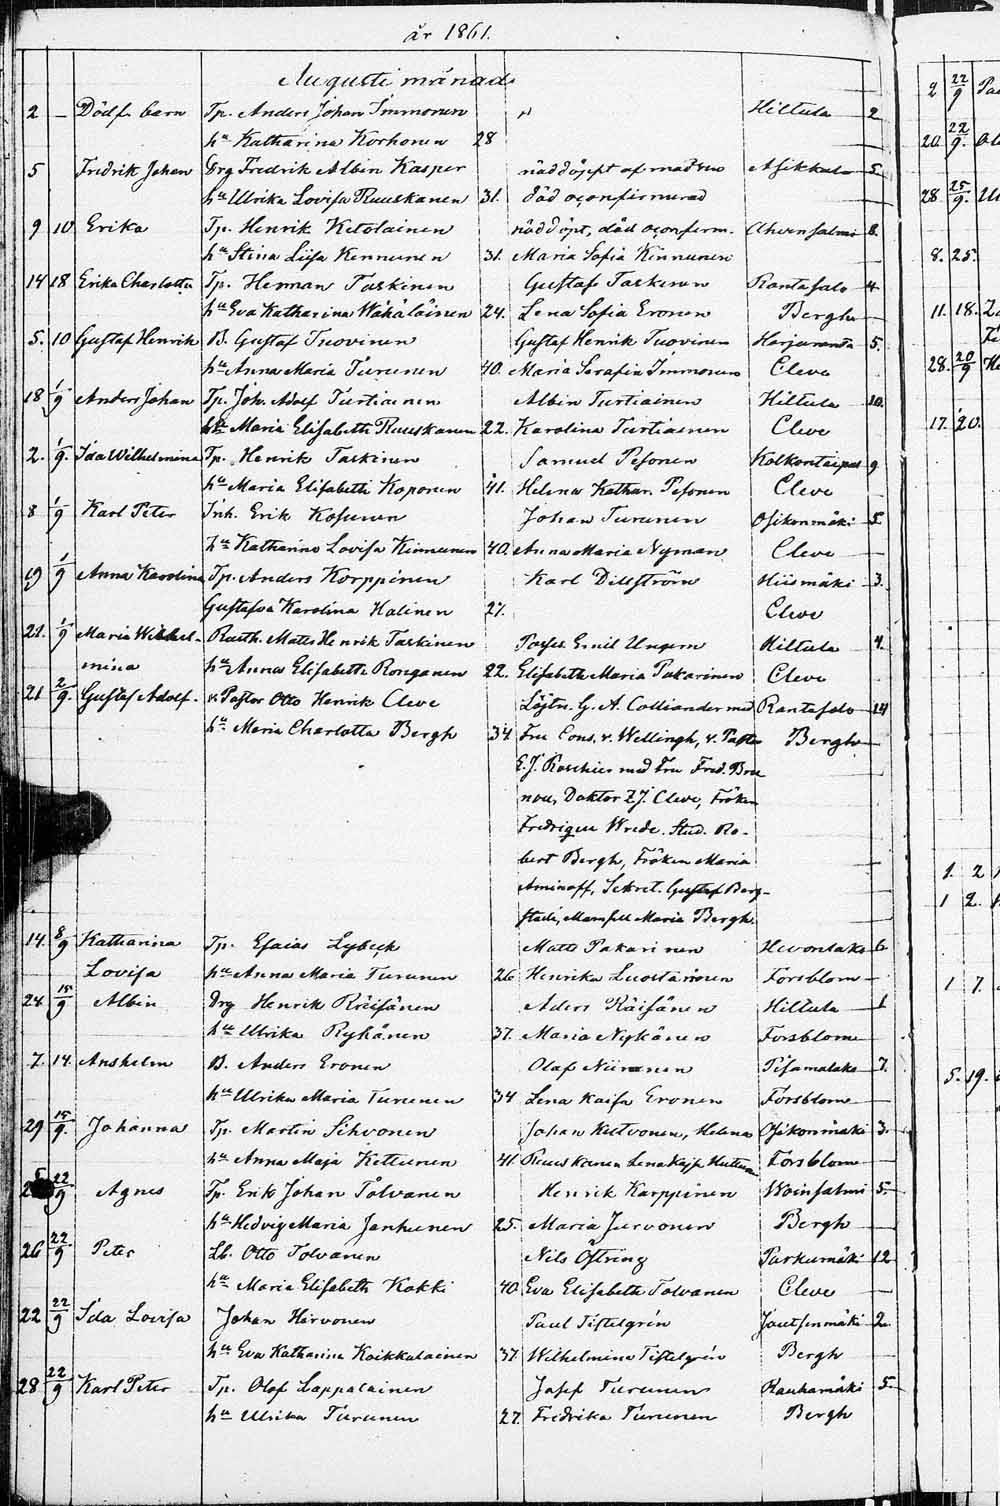 år 1861.
Augusti månad
2 — Dödf. barn Tp. Anders Johan Immonen " Hiltula 2
hu Katharina Korhonen 28
5 Fredrik Johan Drg Fredrik Albin Kasper näddöpt af modren Asikkala 5
hu Ulrika Lovisa Ruuskanen 31. död oconfirmerad
9 10 Erika Tp. Henrik Ketolainen näddöpt, död oconferm. Ahvensalmi 8.
hu Stina Liisa Kinnunen 31. Maria Sofia Kinnunen
14 18 Erika Charlotta Tp. Herman Taskinen Gustaf Taskinen Rantasalo 4
hu Eva Katharina Wäkäläinen 24. Lena Sofia Eronen Bergh
5. 10 Gustaf Henrik B. Gustaf Tuovinen Gustaf Henrik Tuovinen Harjuranta 5.
hu Anna Maria Turunen 40. Maria Serafia Immonen Cleve
18 1/9 Anders Johan Tp. Joh. Adolf Turtiainen Albin Turtiainen Hiltula 10.
hu Maria Elisabeth Ruuskanen 22. Karolina Turtiainen Cleve
2. 1/9. Ida Wilhelmina Tp. Henrik Taskinen Samuel Pesonen Kolkontaipal 9
hu Maria Elisabeth Koponen 41. Helena Kathar. Pesonen Cleve
8 1/9 Karl Peter Inh. Erik Kosunen Johan Turunen Osikonmäki 5
hu Katharina Lovisa Kinnunen 40. Anna Maria Nyman Cleve
19 1/9 Anna Karolina Tp. Anders Korppinen Karl Dillström Hiismäki 3.
Gustafva Karolina Halinen 27. Cleve
21. 1/9 Maria Wilhel- Rusth. Mats Henrik Taskinen Posses. Emil Ungern Hiltula 4.
mina hu Anna Elisabeth Ronganen 22. Elisabeth Maria Pakarinen Cleve
21 2/9. Gustaf Adolf. v. Pastor Otto Henrik Cleve Löjtn. G. A. Colliander med Rantasalo 14
hu Maria Charlotta Bergh 34. Fru Cons. v. Wellingh, v. Pastor Bergh
E. J. Roschier med Fru Fred. Bru
nou, Doktor Z. J. Cleve, Fröken
Fredrique Wrede. Stud. Ro-
bert Bergh, Fröken Maria
Aminoff, Sekret. Gustaf Berg-
stadi, Mamsell Maria Bergh.
14. 8/9 Katharina Tp. Esaias Lybeck Matts Pakarinen Hevonlaks 6
Lovisa hu Anna Maria Turunen 26 Henrika Luostarinen Forsblom
24. 15/9 Albin Drg Henrik Räisänen Aders Räisänen Hiltula 1
hu Ulrika Rykänen 37. Maria Nykänen Forsblom
7. 14. Anshelm B. Anders Eronen Olof Niiranen Pisamalaks 7.
hu Ulrika Maria Turunen 34 Lena Kaisa Eronen Forsblom
29 15/9. Johanna Tp. Martin Sihvonen Johan Kettvonen, Helena Osikonmäki 3.
hu Anna Maja Kettunen 41. Ruuskanen Lena Kajsa Huttun Forsblom
22/9 Agnes Tp. Erik Johan Tolvanen Henrik Karppinen Woinsalmi 5.
hu Hedvig Maria Janhunen 25. Maria Jurvonen Bergh
26 22/9 Peter Lb. Otto Tolvanen Nils Östring Parkumäki 12
hu Maria Elisabeth Kokki 40. Eva Elisabeth Tolvanen Cleve
22 22/9 Ida Lovisa Johan Härvonen Paul Tistelgrén Joutsenmäki 2.
hu Eva Katharina Koikkalainen 37. Wilhelmina Tistelgrén Bergh
28 22/9 Karl Peter Tp. Olof Lappalainen Josef Turunen Rauhamäki 5.
hu Ulrika Turunen 27. Fredrika Turunen Bergh
2 22/9
20. 22/9.
28 25/9.
8. 25.
11. 18.
28. 20/9
17. 20.
1. 2
1 2.
1 7.
5. 19.